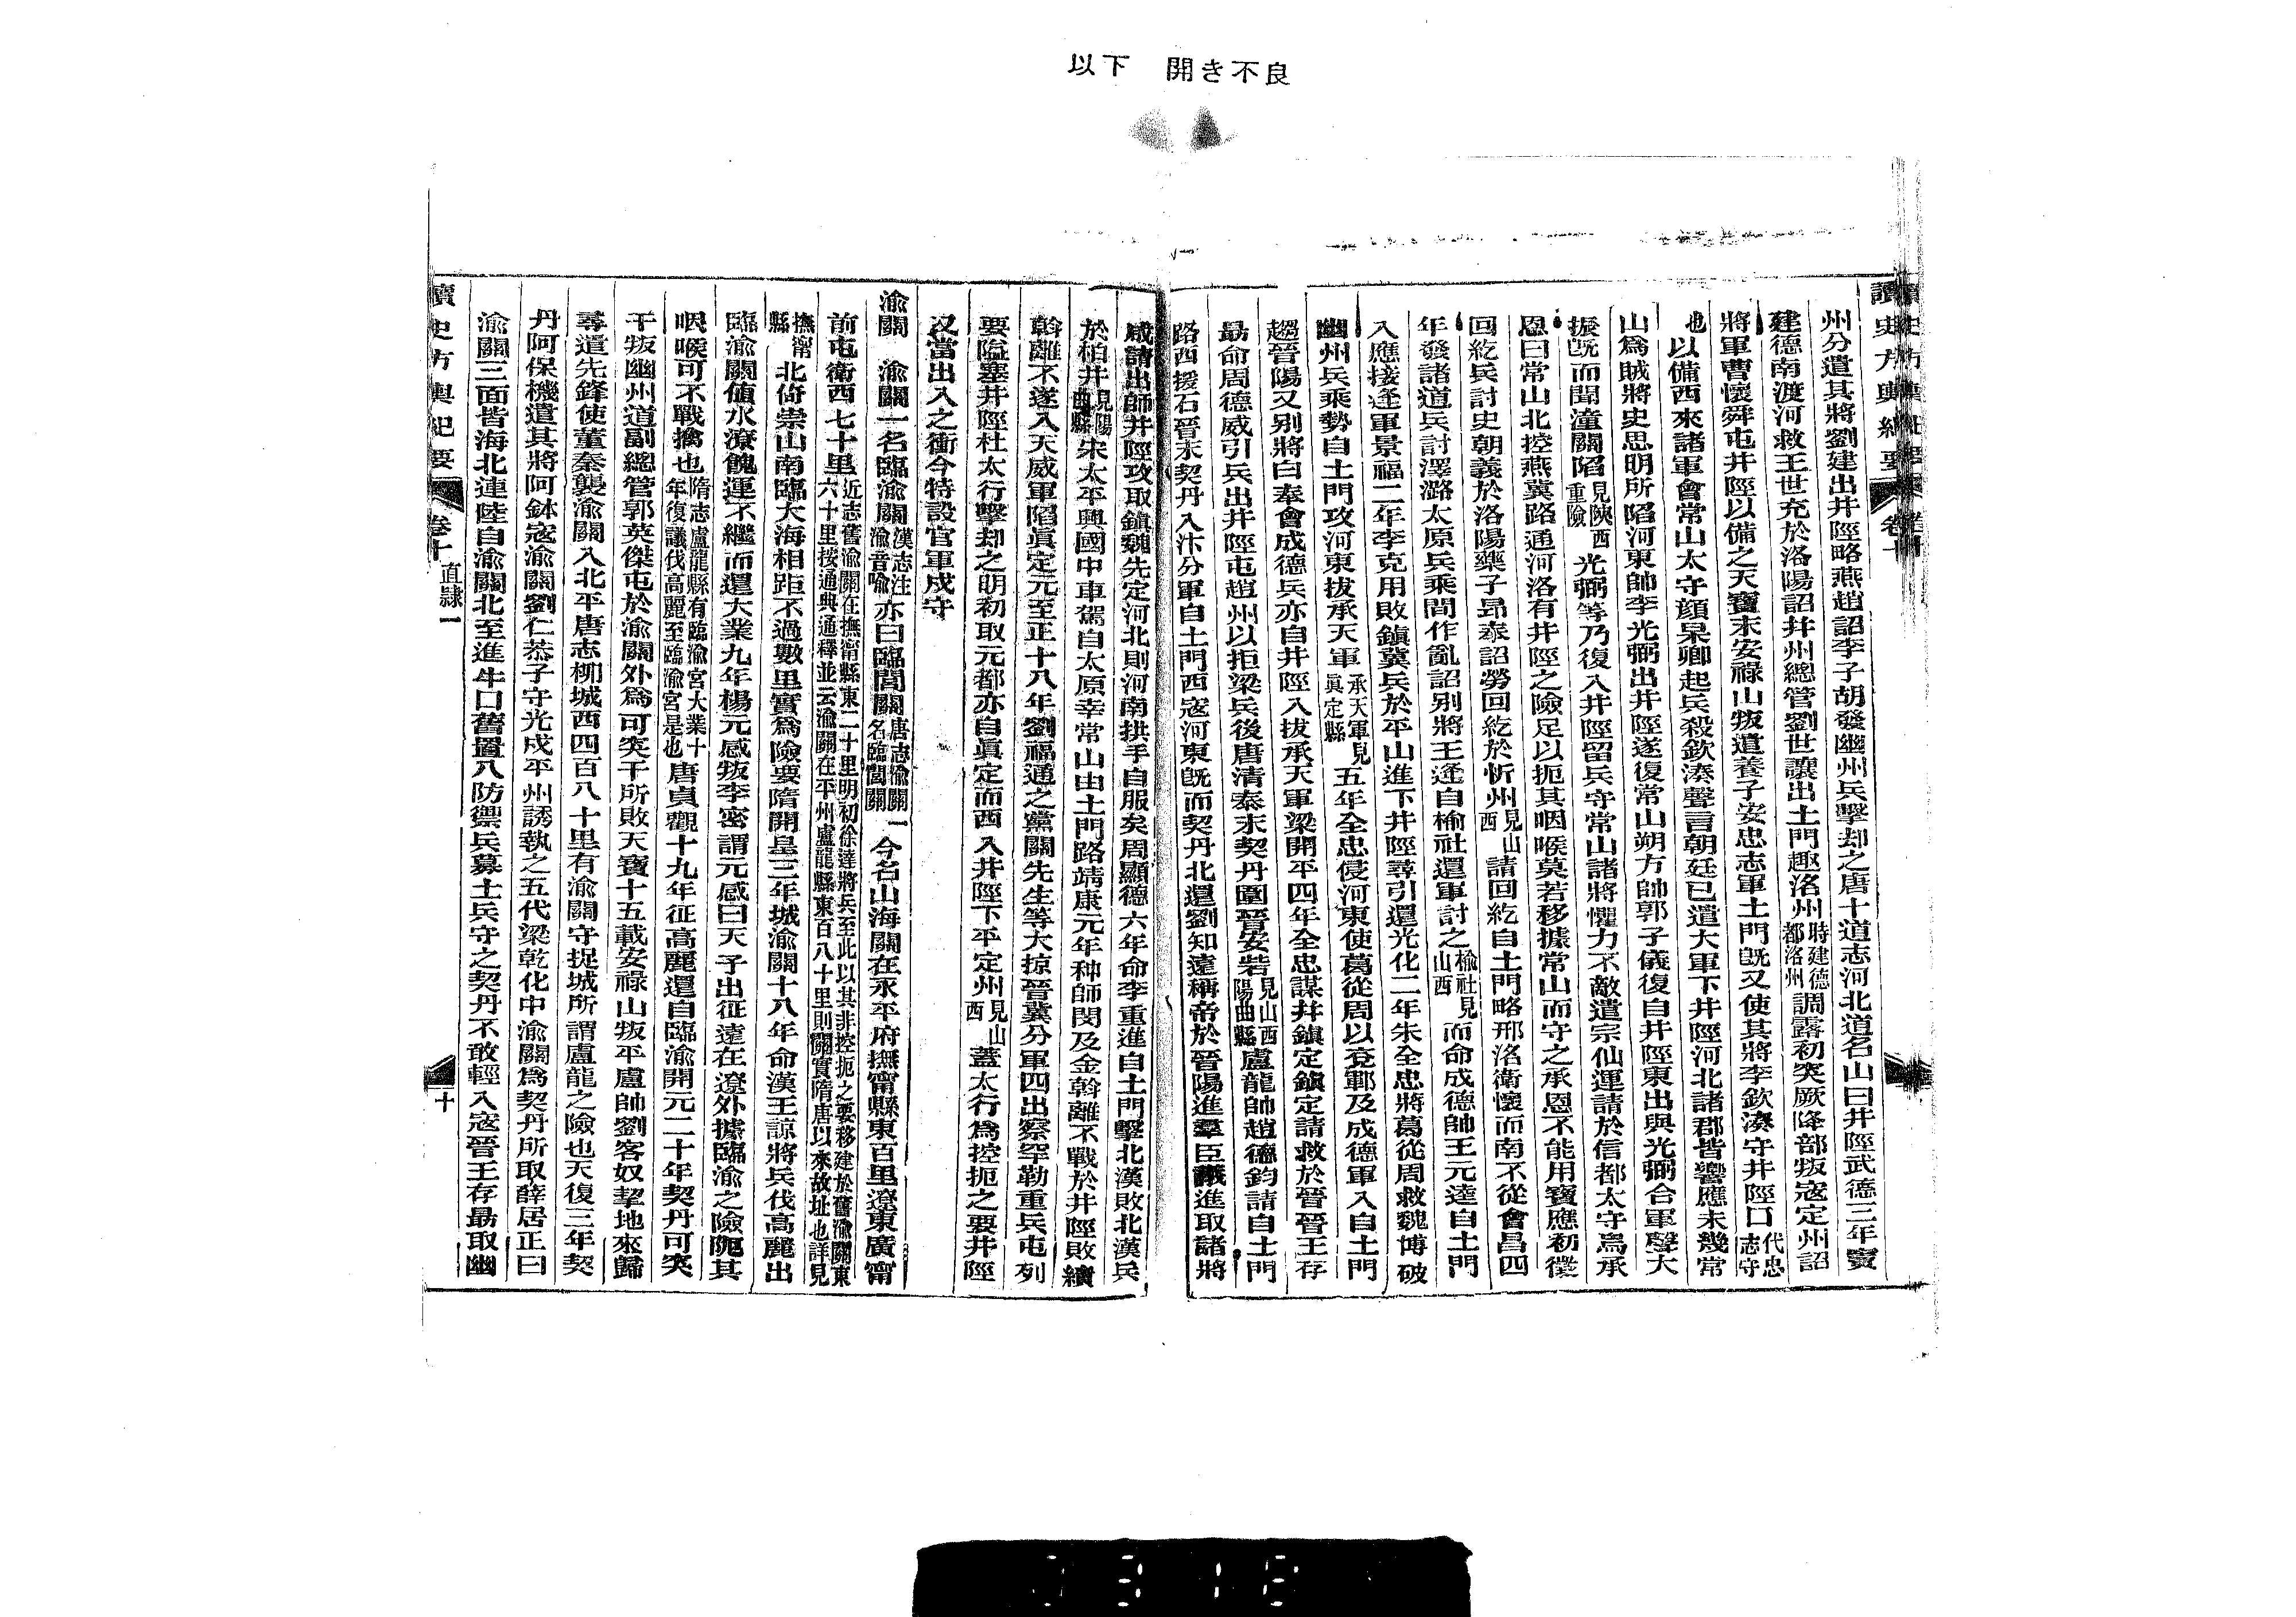 以下　開き不良
讀史方輿紀要　卷十
州分遣其將劉建出井陘略燕趙詔李子胡發幽州兵擊却之唐十道志河北道名山曰井陘武德三年竇
建德南渡河救王世充於洛陽詔幷州總管劉世讓出土門趣洛州時建德都洛州調露初突厥降部叛寇定州詔
將軍曹懷舜屯井陘以備之天寶末安祿山叛遣養子安忠志軍土門旣又使其將李欽湊守井陘口代忠志守
也以備西來諸軍會常山太守顔杲卿起兵殺欽湊聲言朝廷已遣大軍下井陘河北諸郡皆響應未幾常
山爲賊將史思明所陷河東帥李光弼出井陘遂復常山朔方帥郭子儀復自井陘東出與光弼合軍聲大
振旣而聞潼關陷見陝西重險光弼等乃復入井陘留兵守常山諸將懼力不敵遣宗仙運請於信都太守烏承
恩曰常山北控燕冀路通河洛有井陘之險足以扼其咽喉莫若移據常山而守之承恩不能用寶應初徵
回紇兵討史朝義於洛陽藥子昂奉詔勞回紇於忻州見山西請回紇自土門略邢洛衛懷而南不從會昌四
年發諸道兵討澤潞太原兵乘間作亂詔別將王逢自榆社還軍討之榆社見山西而命成德帥王元逵自土門
入應接逢軍景福二年李克用敗鎭冀兵於平山進下井陘尋引還光化二年朱全忠將葛從周救魏博破
幽州兵乘勢自土門攻河東拔承天軍承天軍見眞定縣五年全忠侵河東使葛從周以兗鄆及成德軍入自土門
趨晉陽又別將白奉會成德兵亦自井陘入拔承天軍梁開平四年全忠謀幷鎭定鎭定請救於晉晉王存
勗命周德威引兵出井陘屯趙州以拒梁兵後唐清泰末契丹圍晉安砦見山西陽曲縣盧龍帥趙德鈞請自土門
路西援石晉末契丹入汴分軍自土門西寇河東旣而契丹北還劉知遠稱帝於晉陽進羣臣議進取諸將
咸請出師井陘攻取鎭魏先定河北則河南拱手自服矣周顯德六年命李重進自土門擊北漢敗北漢兵
於柏井見陽曲縣宋太平興國中車駕自太原幸常山由土門路靖康元年种師閔及金斡離不戰於井陘敗績
斡離不遂入天威軍陷眞定元至正十八年劉福通之黨關先生等大掠晉冀分軍四出察罕勒重兵屯列
要隘塞井陘杜太行擊却之明初取元都亦自眞定而西入井陘下平定州見山西蓋太行爲控扼之要井陘
又當出入之衝今特設官軍戍守
渝關　渝關一名臨渝關漢志注渝音喻亦曰臨閭關唐志渝關一名臨閭關今名山海關在永平府撫甯縣東百里遼東廣甯
前屯衛西七十里近志舊渝關在撫甯縣東二十里明初徐達將兵至此以其非控扼之要移建於舊渝關東六十里按通典通釋並云渝關在平州盧龍縣東百八十里則關實隋唐以來故址也詳見
撫甯縣北倚崇山南臨大海相距不過數里實爲險要隋開皇三年城渝關十八年命漢王諒將兵伐高麗出
臨渝關値水潦餽運不繼而還大業九年楊元感叛李密謂元感曰天子出征遠在遼外據臨渝之險阸其
咽喉可不戰擒也隋志盧龍縣有臨渝宮大業十年復議伐高麗至臨渝宮是也唐貞觀十九年征高麗還自臨渝開元二十年契丹可突
干叛幽州道副總管郭英傑屯於渝關外爲可突干所敗天寶十五載安祿山叛平盧帥劉客奴挈地來歸
尋遣先鋒使董秦襲渝關入北平唐志柳城西四百八十里有渝關守捉城所謂盧龍之險也天復三年契
丹阿保機遣其將阿鉢寇渝關劉仁恭子守光戍平州誘執之五代梁乾化中渝關爲契丹所取薛居正曰
渝關三面皆海北連陸自渝關北至進牛口舊置八防禦兵募士兵守之契丹不敢輕入寇晉王存勗取幽
讀史方輿紀要　卷十　直隸一　十